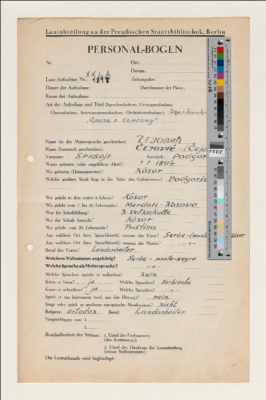 Lautabteilung an der Preußischen Staatsbibliothek, Berlin
PERSONAL-BOGEN
Nr. Ort:
Datum:
Laut-Aufnahme Nr. Zeitangabe:
Dauer der Aufnahme: Durchmesser der Platte:
Raum der Aufnahme:
Art der Aufnahme und Titel (Sprechaufnahme, Gesangsaufnahme,
Choraufnahme, Instrumentenaufnahme, Orchesteraufnahme):
Name (in der Muttersprache geschrieben):
Name (lateinisch geschrieben):
Vorname:
Wann geboren (oder ungefähres Alter)? 1894
Wo geboren (Heimatort)? Kosor
Welche größere Stadt liegt in der Nähe des Geburtsortes?
Wo gelebt in den ersten 6 Jahren? Kosor
Wo gelebt vom 7. bis 20. Lebensjahr? Kosovo
Was für Schulbildung? 3. Volksschule
Wo die Schule besucht? Kosor
Wo gelebt vom 20. Lebensjahr? Pristina
Aus welchem Ort (bzw. Sprachbezirk) stammt der Vater?
Aus welchem Ort (bzw. Sprachbezirk) stammt die Mutter? - " -
Beruf des Vaters? Landarbeiter
Welchem Volksstamm angehörig? Serbe
Welche Sprache als Muttersprache? - " -
Welche Sprachen spricht er außerdem? kein
Kann er lesen? ja Welche Sprachen? Serbische
Kann er schreiben? ja Welche Sprachen? - " -
Spielt er ein Instrument (evtl. aus der Heimat)? nein
Singt oder spielt er moderne europäische Musikweisen? nicht
Religion: ortodox Beruf: Landarbeiter
Vorgeschlagen von: 1.
2.
Beschaffenheit der Stimme: 1. Urteil des Fachmannes
(des Assistenten):
2. Urteil des Direktors der Lautabteilung
(seines Stellvertreters):
Die Lauturkunde wird beglaubigt: